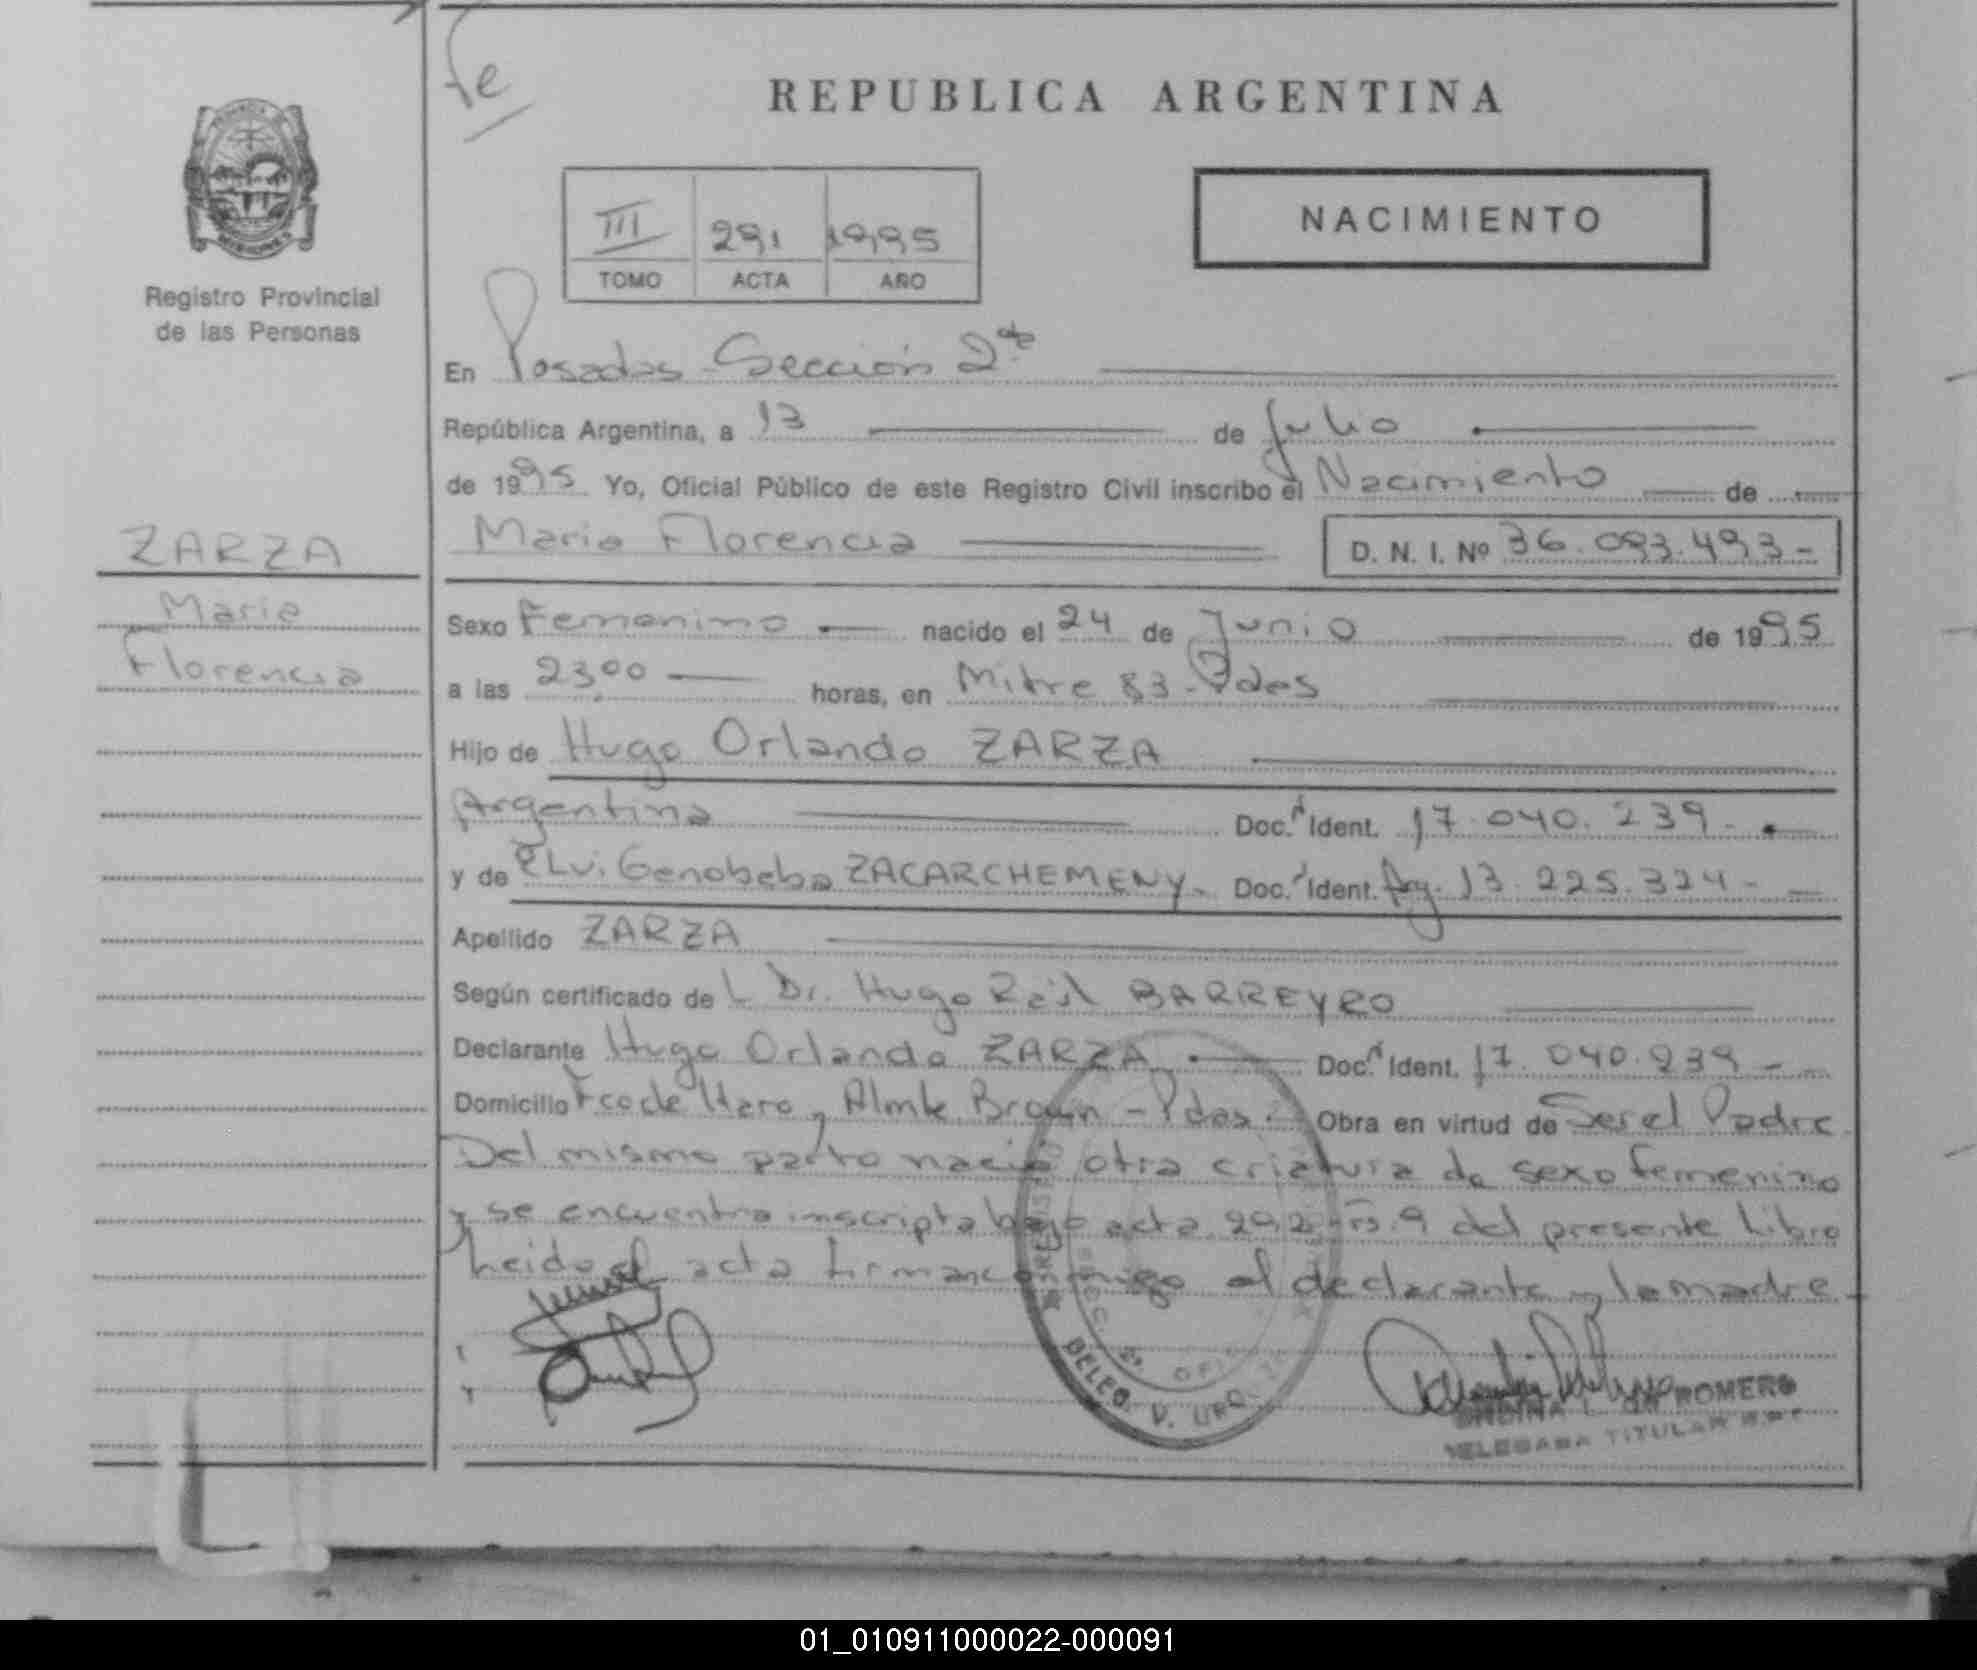 Fe
REPUBLICA ARGENTINA
NACIMIENTO
III 291 1995
TOMO ACTA AÑO
Registro Provincial
de las Personas
En Posadas Sección 2da
República Argentina, a 13 de Julio
de 1995 Yo, Oficial Público de este Registro Civil inscribo el Nacimiento de
Maria Florencia D. N. I. Nº 36.093.493-
ZARZA
Maria
Florencia
Sexo Femenino nacido el 24 de Junio de 1995
a las 2300 horas, en Mitre 83-Pdas
Hijo de Hugo Orlando ZARZA
Argentina Doc. Ident. 17.040.239-
y de Elvi Genobeba ZACARCHEMENY. Doc. Ident. Arg. 13.225.324-
Apellido ZARZA
Según certificado de L Dr. Hugo Raúl BARREYRO
Declarante Hugo Orlando ZARZA Doc. Ident. 17.040.239-
Domicilio Fco de Haro y Almte Brown - Pdas. Obra en virtud de Ser el Padre
Del mismo parto nació otra criatura de sexo femenino
y se encuentra inscripta bajo acta 292 del presente Libro
Leida el acta firman conmigo el declarante y la madre-
DELEG. V. URQ
ROMERO
DELEGADA TITULAR
01_010911000022-000091